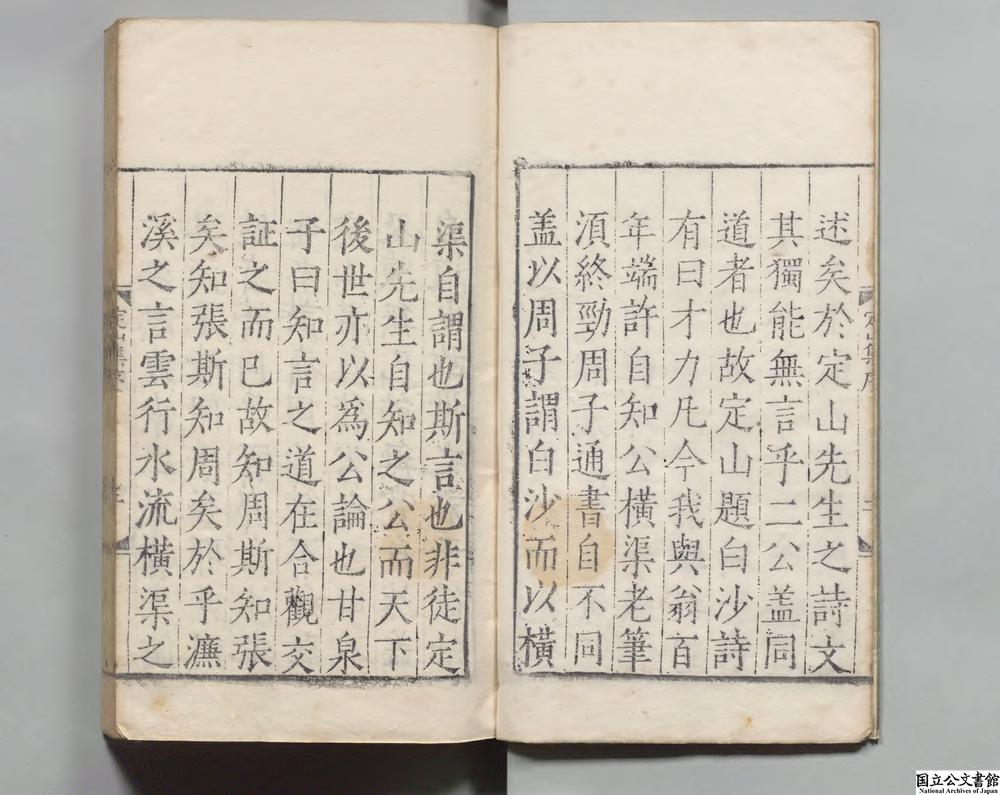 述矣於定山先生之詩文
其獨能無言乎二公盖同
道者也故定山題白沙詩
有曰才力凡今我與翁百
年端許自知公横渠老筆
湏終勁周子通書自不同
盖以周子謂白沙而以横
渠自謂也斯言也非徒定
山先生自知之公而天下
後世亦以爲公論也甘泉
子曰知言之道在合觀交
証之而已故知周斯知張
矣知張斯知周矣於乎濂
溪之言雲行水流横渠之
定山集序
定山集序
国立公文書館
National Archives of Japan